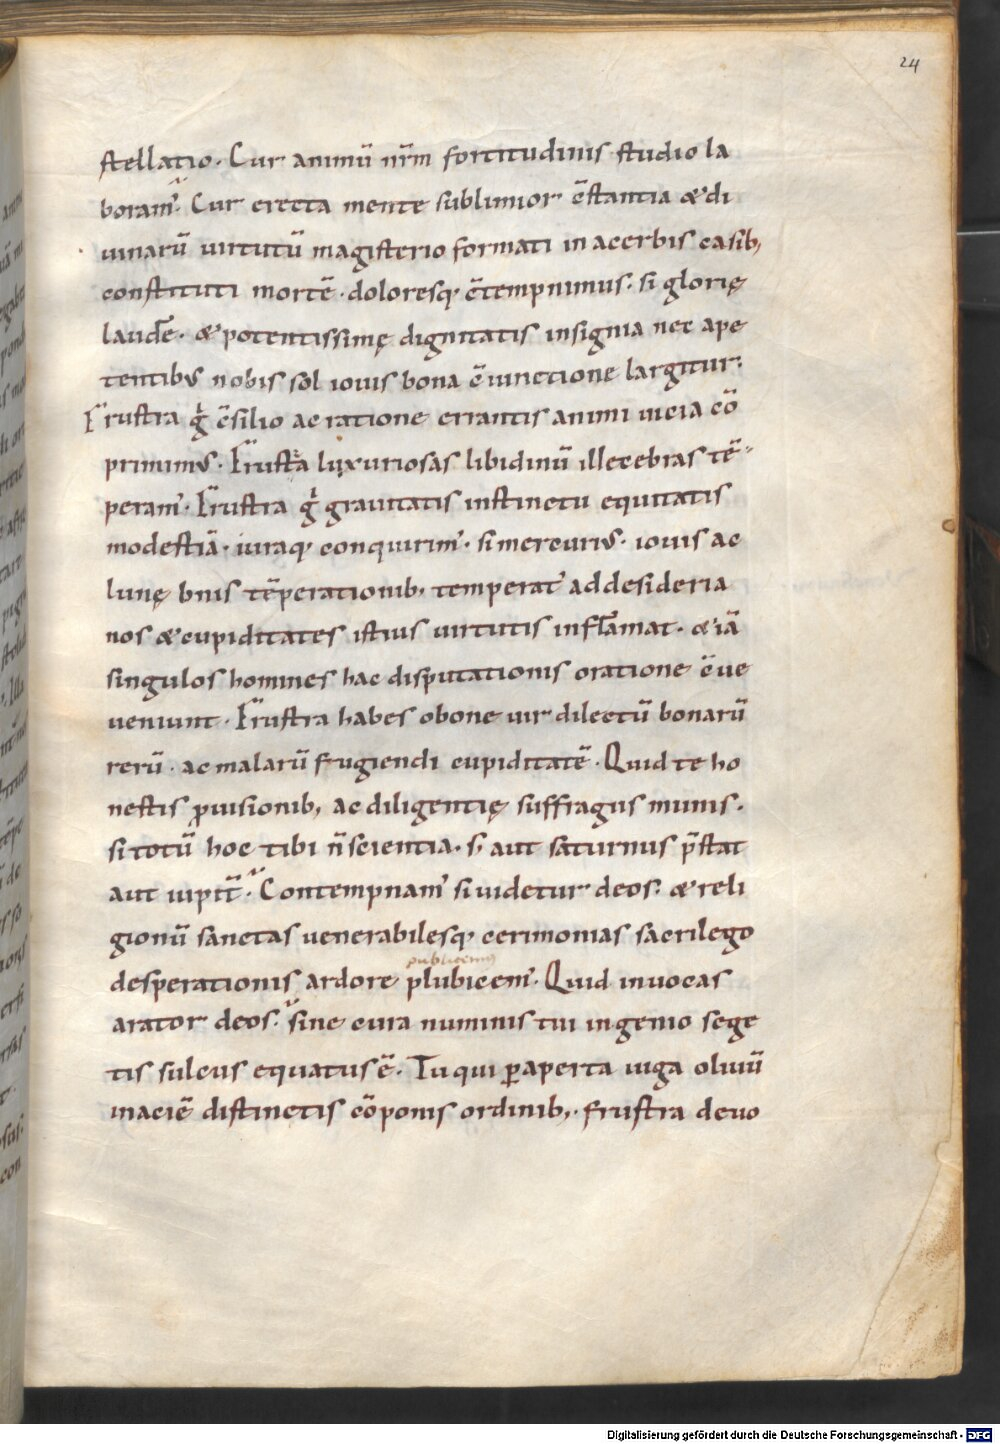 24
stellatio. Cur animū nr̄m fortitudinis studio la
boram̄. Cur erecta mente sublimior c̄stantia & di
uinarū uirtutū magisterio formati in acerbis casib;
constituti mortē. doloresq; c̄tempnimus. si glorię
laudē. & potentissimę dignitatis insignia nec ape
tentibus nobis sol iouis bona c̄iunctione largitur.
Frustra g̊ c̄silio ac ratione errantis animi uicia cō
primimus. Frustra luxuriosas libidinū illecebras tē-
peram̄. Frustra g̊ grauitatis instinctu equitatis
modestiā. iuraq; conquirim̄. si mercurius. iouis ac
lunę bnis tēperationib; temperat ad desideria
nos & cupiditates istius uirtutis inflāmat. & iā
singulos homines hac disputationis oratione c̄ue
veniunt. Frustra habes o bone uir dilectū bonarū
rerū. ac malarū frugiendi cupiditatē. Quid te ho
nestis p̱uisionib; ac diligentię suffragiis munis.
si totū hoc tibi n̄ scientia. s; aut saturnus p̄stat
aut iupit̄. Contempnam̄ si uidetur deos. & reli
gionū sanctas venerabilesq; cerimonias sacrilego
publicem;
desperationis ardore plubicem̄. Quid inuocas
arator deos. sine cura numinis tui ingenio sege
tis sulcus equatus ē. Tu qui ꝑ aperta iuga oliuū
in aciē distinctis cōponis ordinib;. frustra deuo
Digitalisierung gefördert durch die Deutsche Forschungsgemeinschaft - DFG